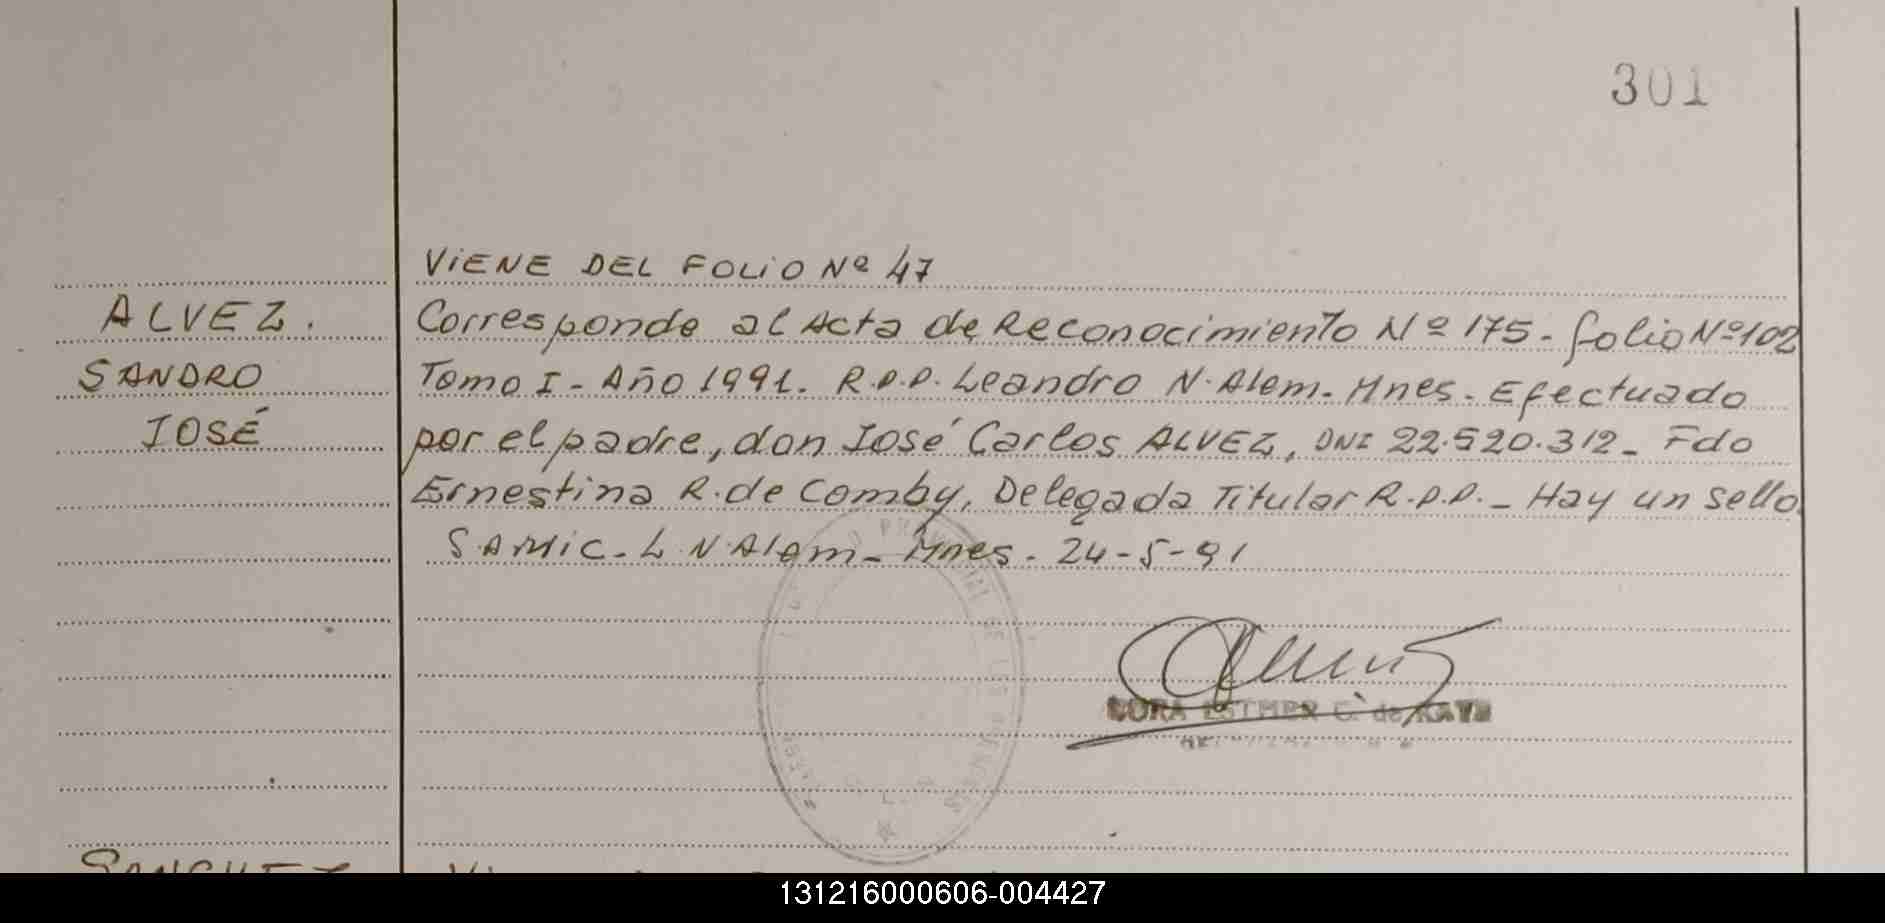 301
VIENE DEL FOLIO Nº 47
ALVEZ.
SANDRO
JOSÉ
Corresponde al Acta de Reconocimiento Nº 175 - folio Nº 102
Tomo I - Año 1991. R.P.P. Leandro N. Alem - Mnes. Efectuado
por el padre, don José Carlos ALVEZ, DNI 22.520.312 - Fdo
Ernestina R. de Comby, Delegada Titular R.P.P. - Hay un sello
SAMIC - L N Alem - Mnes - 24-5-91
DORA ESTHER C. de
131216000606-004427